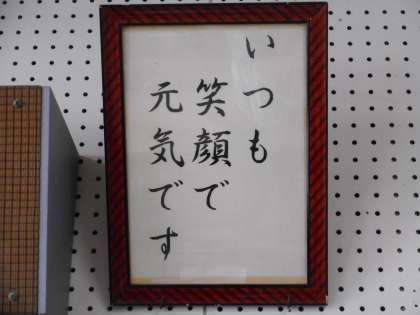 いつも
笑顔で
元気です